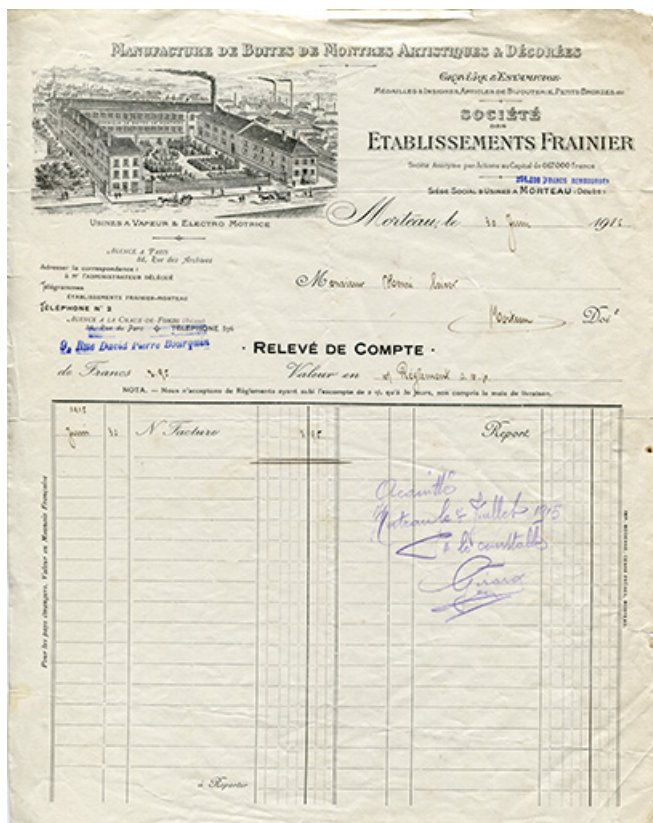 MANUFACTURE DE BOITES DE MONTRES ARTISTIQUES & DÉCORÉES
GRAVURE & ESTAMPAGE
MÉDAILLES & INSIGNES, ARTICLES DE BIJOUTERIE, PETITS BRONZES
SOCIÉTÉ
DES
ETABLISSEMENTS FRAINIER
Société Anonyme par Actions au Capital de 667.000 francs
FRANCS REMBOURSÉS
SIÈGE SOCIAL & USINES A MORTEAU (DOUBS)
USINES A VAPEUR & ELECTRO MOTRICE
Morteau, le 30 Juin 1915
AGENCE A PARIS
Rue des Archives
Adresser la correspondance :
à Mr l'ADMINISTRATEUR DÉLÉGUÉ
Télégrammes
ÉTABLISSEMENTS FRAINIER-MORTEAU
TÉLÉPHONE N° 2
AGENCE A LA CHAUX-DE-FONDS
Rue du Parc TÉLÉPHONE
9, Rue David Pierre Bourquin
Monsieur
Morteau
Doit
· RELEVÉ DE COMPTE ·
de Francs
Valeur en Règlement
NOTA. — Nous n'acceptons de Règlements ayant subi l'escompte de 2 %, qu'à 30 jours, non compris le mois de livraison.
1915
Juin 30 N Facture
Report
Pour les pays étrangers, Valeur en Monnaie Française
Acquitté
Morteau le Juillet 1915
le comptable
Girard
à Reporter